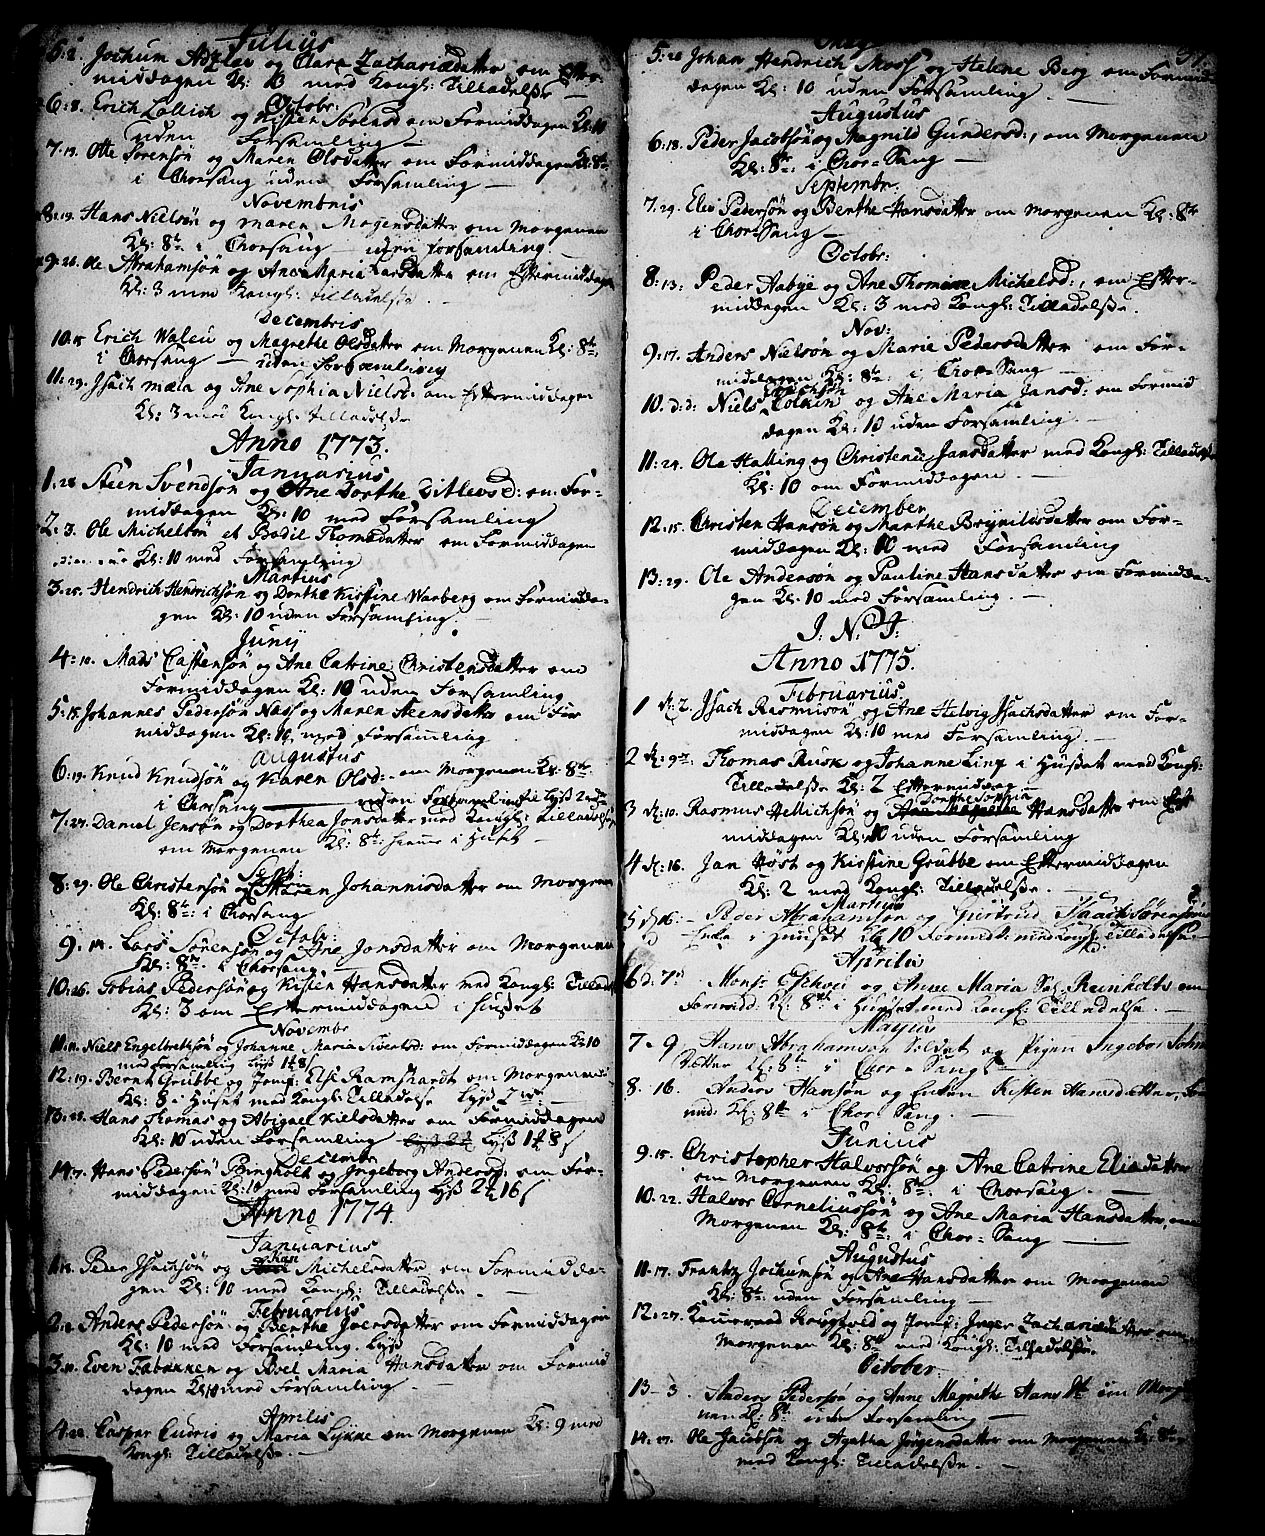 Julius
5: 2. Jochum Adzlev og Clare Zachariædatter om Efter-
middagen Kl: 10 med Kongl: Tilladelse
Octobr:
6: 8. Erich Zollich og Kisten Sörensd om Formiddagen Kl: 10
uden Forsamling
7: 13. Otte Sörensön og Maren Olsdatter om Formiddagen Kl: 8te
i Chorsang uden Forsamling
Novembris
8: 19. Hans Nielsön og Maren Mogensdatter om Morgenen
Kl: 8te i Chorsang uden forsamling
9: 26. Ole Abrahamsön og Ane Maria Larsdatter om Eftermiddagen
Kl: 3 med Kongl: Tilladelse
Decembris
10: 15 Erich Waleu og Magrethe Olsdatter om Morgenen Kl: 8te
i Chorsang uden Forsamling
11: 29. Isach mæln og Ane Sophia Nielsd: om Eftermiddagen
Kl: 3 med Kongl: Tilladelse
Anno 1773.
Januarius
1: 28 Steen Svendsön og Ane Dorthe Ditlevsd: om For-
middagen Kl: 10 med Forsamling
2: 3. Ole Michelsön et Bodil Thomsdatter om Formiddagen
Kl: 10 med Forsamling
Martius
3: 25. Hendrich Hendrichsön og Dorthe Kistine Warberg om Formidda-
gen Kl: 10 uden Forsamling.
Junij
4: 10. Mads Castensön og Ane Catrine Christensdatter om
Formiddagen Kl: 10 uden Forsamling
5: 15. Johannes Pedersön Næss og Maren Steensdatter om For
middagen Kl: 10 med Forsamling
Augustus
6: 19. Knud Knudsön og Karen Olsd: om Morgenen Kl: 8te
i Chorsang uden Forsamling
7: 27. Daniel Jensön og Dorthea Jonsdatter med Kongl: Tilladelse
om Morgenen Kl: 8te hiemme i Huset
Septb:
8: 29. Ole Christensön og Maren Johannisdatter om Morgenen
Kl: 8te i Chorsang
Octobr:
9: 14. Lars Sörensön og Ane Jonsdatter om Morgenen
Kl: 8te i Chorsang
10: 26. Tobias Pedersön og Kisten Hansdatter med Kongl: Tilladelse
Kl: 3 om Eftermiddagen i Huset
Novembr
11: 11. Niels Engelbretsön og Johanne Maria Siverlsd: om Formiddagen Kl: 10
med Forsamling
12: 19. Bernt Grubbe og Jomf: Else Ramshardt om Morgenen
Kl: 8 i Huset med Kongl: Tilladelse
13: 28. Hans Thomas og Abigael Nielsdatter om Formiddagen
Kl: 10 uden Forsamling
Decembr
14: 7. Hans Pedersön Bingholt og Ingeborg Andersd: om For-
middagen Kl: 10 med Forsamling
Anno 1774.
Januarius
1: 14. Peder Isachsön og Kari Michelsdatter om Formidda-
gen Kl: 10 med Kongl: Tilladelse.
Februarius
2: 2. Anders Pedersön og Berthe Joersdatter om Formiddagen
Kl: 10 med Forsamling.
3: 11. Even Fabakken og Boel Maria Hansdatter om Formid
dagen Kl: 10 med Forsamling
Aprilis
4: 22. Casper Cudris og Maria Lykke om Morgenen Kl: 9 med
Kongl: Tilladelse
37.
5: 20 Johan Hendrich Moss og Helene Berg om Formid-
dagen Kl: 10 uden Forsamling.
Augustus
6: 18. Peder Jacobsön og Magnild Gundersd:, om Morgenen
Kl: 8te: i Chor-Sang
Septembr.
7: 29. Elis Pedersön og Berthe Hansdatter om Morgenen Kl: 8te
i Chor-Sang
Octobr:
8: 13. Peder Aabye og Ane Thomine Michelsd:, om Efter-
middagen Kl: 3 med Kongl: Tilladelse.
Nov:
9: 17. Anders Nielsön og Marie Pedersdatter om For-
middagen Kl: 8te: i Chor-Sang
10. d: d: Niels Colbin og Ane Maria Jansd: om Formid
dagen Kl: 10 uden Forsamling.
11: 24. Ole Halling og Christence Jansdatter med Kongl: Tilladelse
Kl: 10 om Formiddagen.
December
12: 15. Christen Hansön og Marthe Brynildsdatter om For-
middagen Kl: 10 med Forsamling
13: 29. Ole Andersön og Pauline Hansdatter om Formidda-
gen Kl: 10 med Forsamling.
I. N. J.
Anno 1775.
Februarius
1 d: 2. Isach Rasmusön og Ane Helvig Isachsdatter om For-
middagen Kl: 10 med Forsamling.
2 d: 9de: Thomas Rusk og Johanne Ling i Huset med Kongl:
Tilladelse Kl: 2 Eftermiddag
Dorthe Sophia
3 d: 10. Rasmus Hellichsön og Hansdatter om For
middagen Kl: 10 uden Forsamling
4 d: 16. Jan Höst og Kistine Grubbe om Eftermiddagen
Kl: 2 med Kongl: Tilladelse.
Martius
5 d 16. Peder Abrahamsön og Giertrud Isaach Sörensöns
Enke i Huuset Kl 10 Formid: med Kongl: Tilladelse
Aprilis
6 d. 7de Mons: Eschvei og Anne Maria Sal. Reinholts om
Formidd. Kl: 8te i Huuset med Kongl: Tilladelse.
Mayus
7 - 9 Hans Abrahamsön Soldat og Pigen Ingebor
Datter Kl: 8te i Chor-Sang
8. 16. Anders Hansön og Enken Kisten Hansdatter,
Kl: 8te i Chor Sang.
Junius
9: 15. Christopher Halvorsön og Ane Catrine Eliædatter
om Morgenen Kl: 8te: i Chorsang.
10: 22. Halvor Corneliussön og Ane Maria Hansdatter, om
Morgenen Kl: 8te: i Chor-Sang
Augustus
11: 17. Frantz Jochumsön og Ane Hansdatter om Morgenen
Kl: 8te: uden Forsamling
12: 27. Conerad Kougtved og Jomf: Inger Zachariædatter om
Morgenen Kl: 8te med Kongl: Tilladelse.
October
13 - 3. Anders Pedersön og Anne Magrethe Hans Dt om Morge
nen Kl: 8te uden Forsamling
14: 17. Ole Jacobsön og Agatha Jörgensdatter om Morgenen Kl: 8te
med Kongl: Tilladelse.